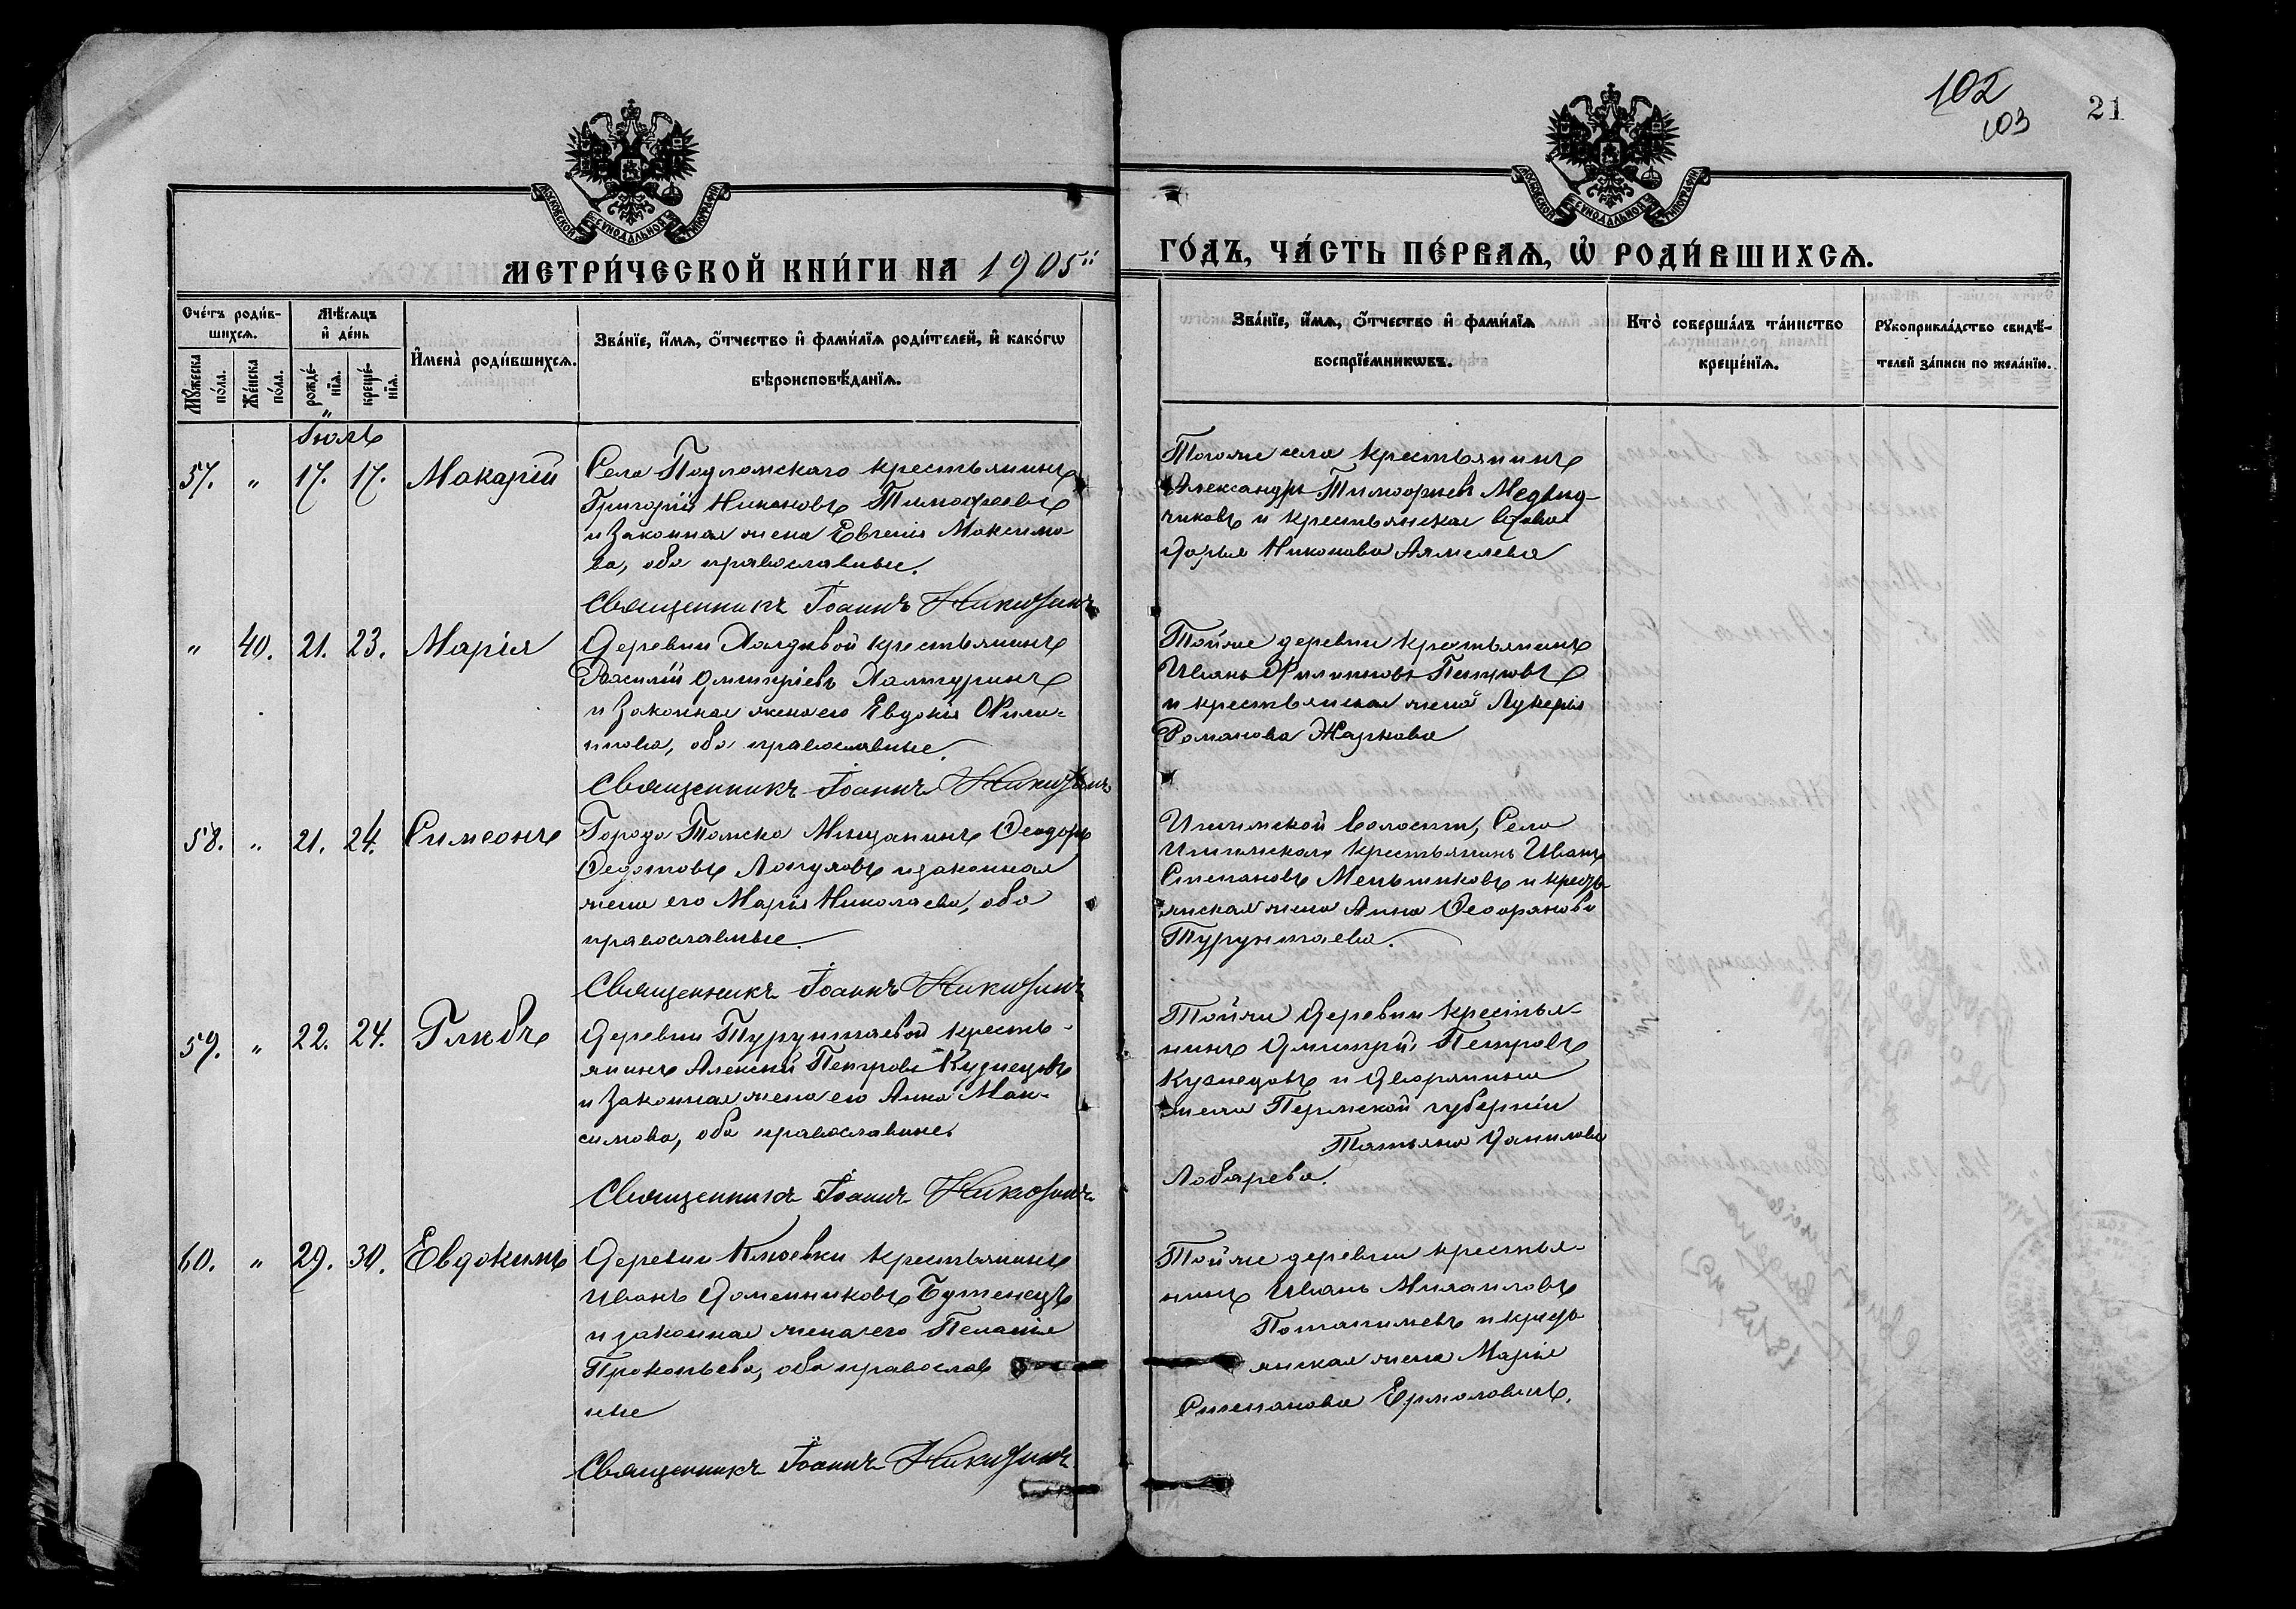 102
103
21
МОСКОВСКОЙ СѴНОДАЛЬНОЙ ТИПОГРАФІИ
МОСКОВСКОЙ СѴНОДАЛЬНОЙ ТИПОГРАФІИ
МЕТРИ́ЧЕСКОЙ КНИ́ГИ НА 1905й
ГО́ДЪ, ЧА́СТЬ ПЕ́РВАѦ, Ѡ҆ РОДИ́ВШИХСѦ.
Сче́тъ роди́в-
шихсѧ.
Мꙋ́жеска по́ла.
Же́нска по́ла.
Мѣ́сѧцъ
и҆ де́нь
рожде́-нїѧ.
креще́-нїѧ.
И҆мена̀ роди́вшихсѧ.
Зва́нїе, и҆́мѧ, ѻ҆́тчество и҆ фами́лїѧ роди́телей, и҆ како́гѡ
вѣроисповѣ́данїѧ.
Зва́нїе, и҆́мѧ, ѻ҆́тчество и҆ фами́лїѧ
воспрїе́мникѡвъ.
Кто̀ соверша́лъ та́инство
креще́нїѧ.
Рꙋкоприкла́дство свидѣ́-
телей за́писи по жела́нїю.
Іюль
57. " 17. 17. Макарій
Села Подломскаго крестьянинъ
Григорій Никоновъ Тимофеевъ
и законная жена Евгенія Максимо-
ва, оба православные.
Священникъ Іоаннъ Никитинъ
Тогоже села крестьянинъ
Александръ Тимофеевъ
чиковъ и крестьянская вдова
Дарья Никонова
" 40. 21. 23. Марія
Деревни крестьянинъ
Василій Дмитріевъ Халтуринъ
и законная жена его Евдокія Фили-
пова, оба православные.
Священникъ Іоаннъ Никитинъ
Тойже деревни крестьянинъ
Иванъ Филиповъ Петровъ
и крестьянская жена Лукерія
Романова Жаркова
58. " 21. 24. Симеонъ
Города Томска Мѣщанинъ Феодоръ
Федотовъ Лопуховъ и законная
жена его Марія Николаева, оба
православные.
Священникъ Іоаннъ Никитинъ
Ишимской волости, Села
Ишимскаго крестьянинъ Иванъ
Степановъ Меньшиковъ и кресть-
янская жена Анна Феофанова
Турунтаева.
59. " 22. 24. Глѣбъ
Деревни Турунтаевой кресть-
янинъ Алексѣй Петровъ Кузнецовъ
и законная жена его Анна Мак-
симова, оба православные.
Священникъ Іоаннъ Никитинъ
Тойже деревни крестья-
нинъ Дмитрій Петровъ
Кузнецовъ и дворянина
жена Пермской губерніи
Татьяна Данилова
Лобарева.
60. " 29. 30. Евдокимъ
Деревни Клюевки крестьянинъ
Иванъ Бутенецъ
и законная жена его Пелагія
Прокопьева, оба православ
ные
Священникъ Іоаннъ Никитинъ
Тойже деревни крестья-
нинъ Иванъ Михаиловъ
и кресть
янская жена Марія
Степанова Ермоловичъ.